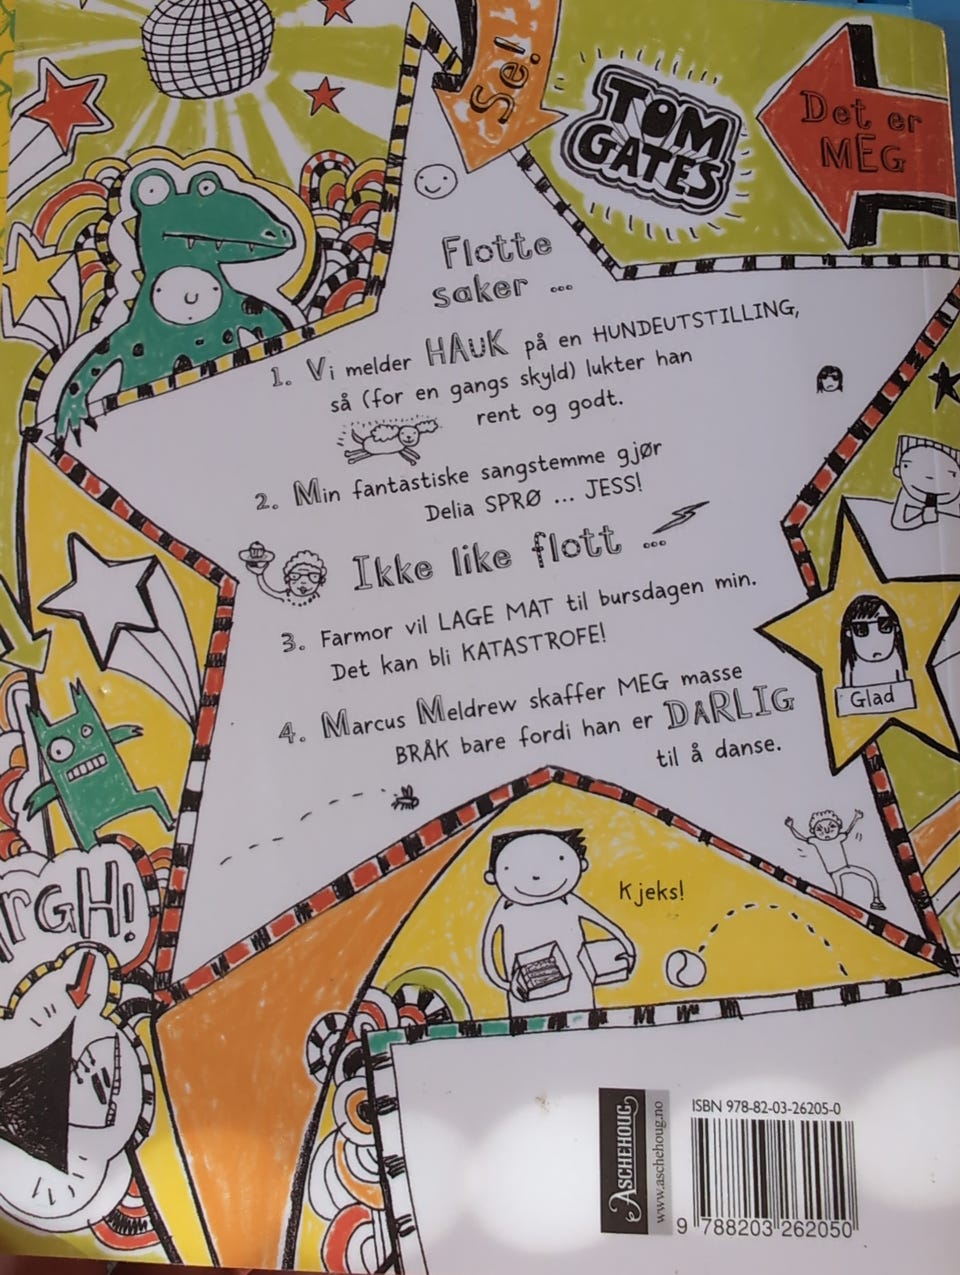 Se!
TOM
GATES
Det er
MEG
Flotte
saker ...
1. Vi melder HAUK på en HUNDEUTSTILLING,
så (for en gangs skyld) lukter han
rent og godt.
2. Min fantastiske sangstemme gjør
Delia SPRØ ... JESS!
Ikke like flott ...
3. Farmor vil LAGE MAT til bursdagen min.
Det kan bli KATASTROFE!
Glad
4. Marcus Meldrew skaffer MEG masse
BRÅK bare fordi han er DÅRLIG
til å danse.
Kjeks!
RGH!
ASCHEHOUG
www.aschehoug.no
ISBN 978-82-03-26205-0
9 788203 262050